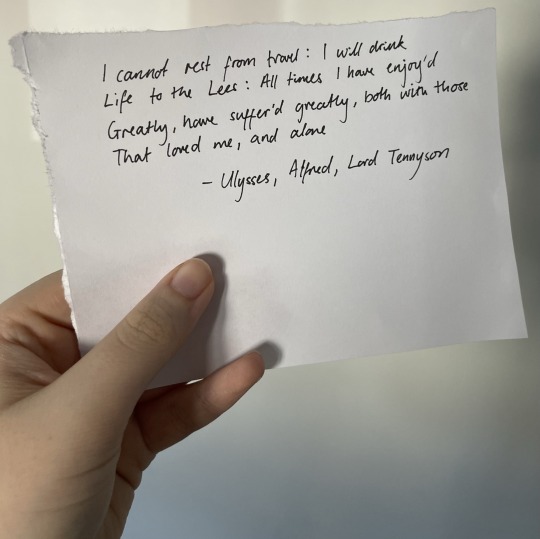 I cannot rest from travel: I will drink
Life to the Lees: All times I have enjoy'd
Greatly, have suffer'd greatly, both with those
That loved me, and alone
- Ulysses, Alfred, Lord Tennyson